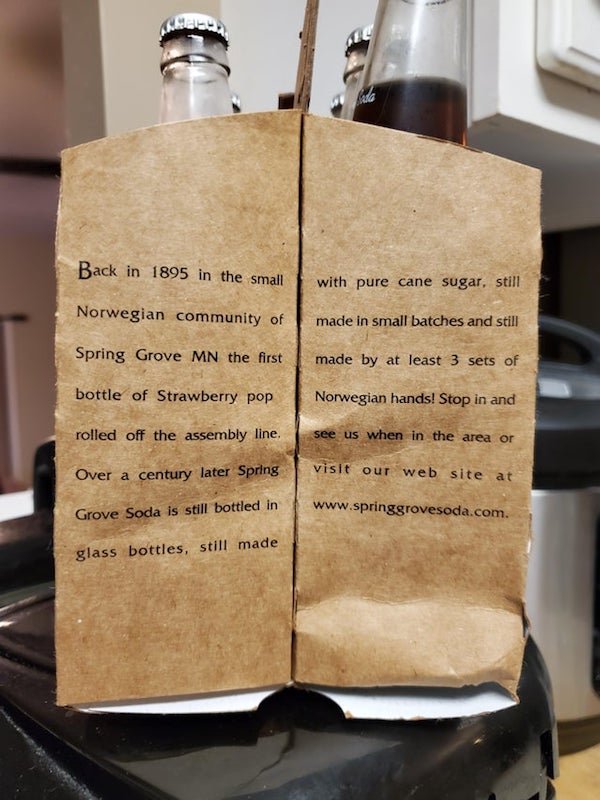 Back in 1895 in the small
Norwegian community of
Spring Grove MN the first
bottle of Strawberry pop
rolled off the assembly line.
Over a century later Spring
Grove Soda is still bottled in
glass bottles, still made
with pure cane sugar, still
made in small batches and still
made by at least 3 sets of
Norwegian hands! Stop in and
see us when in the area or
visit our web site at
www.springgrovesoda.com.